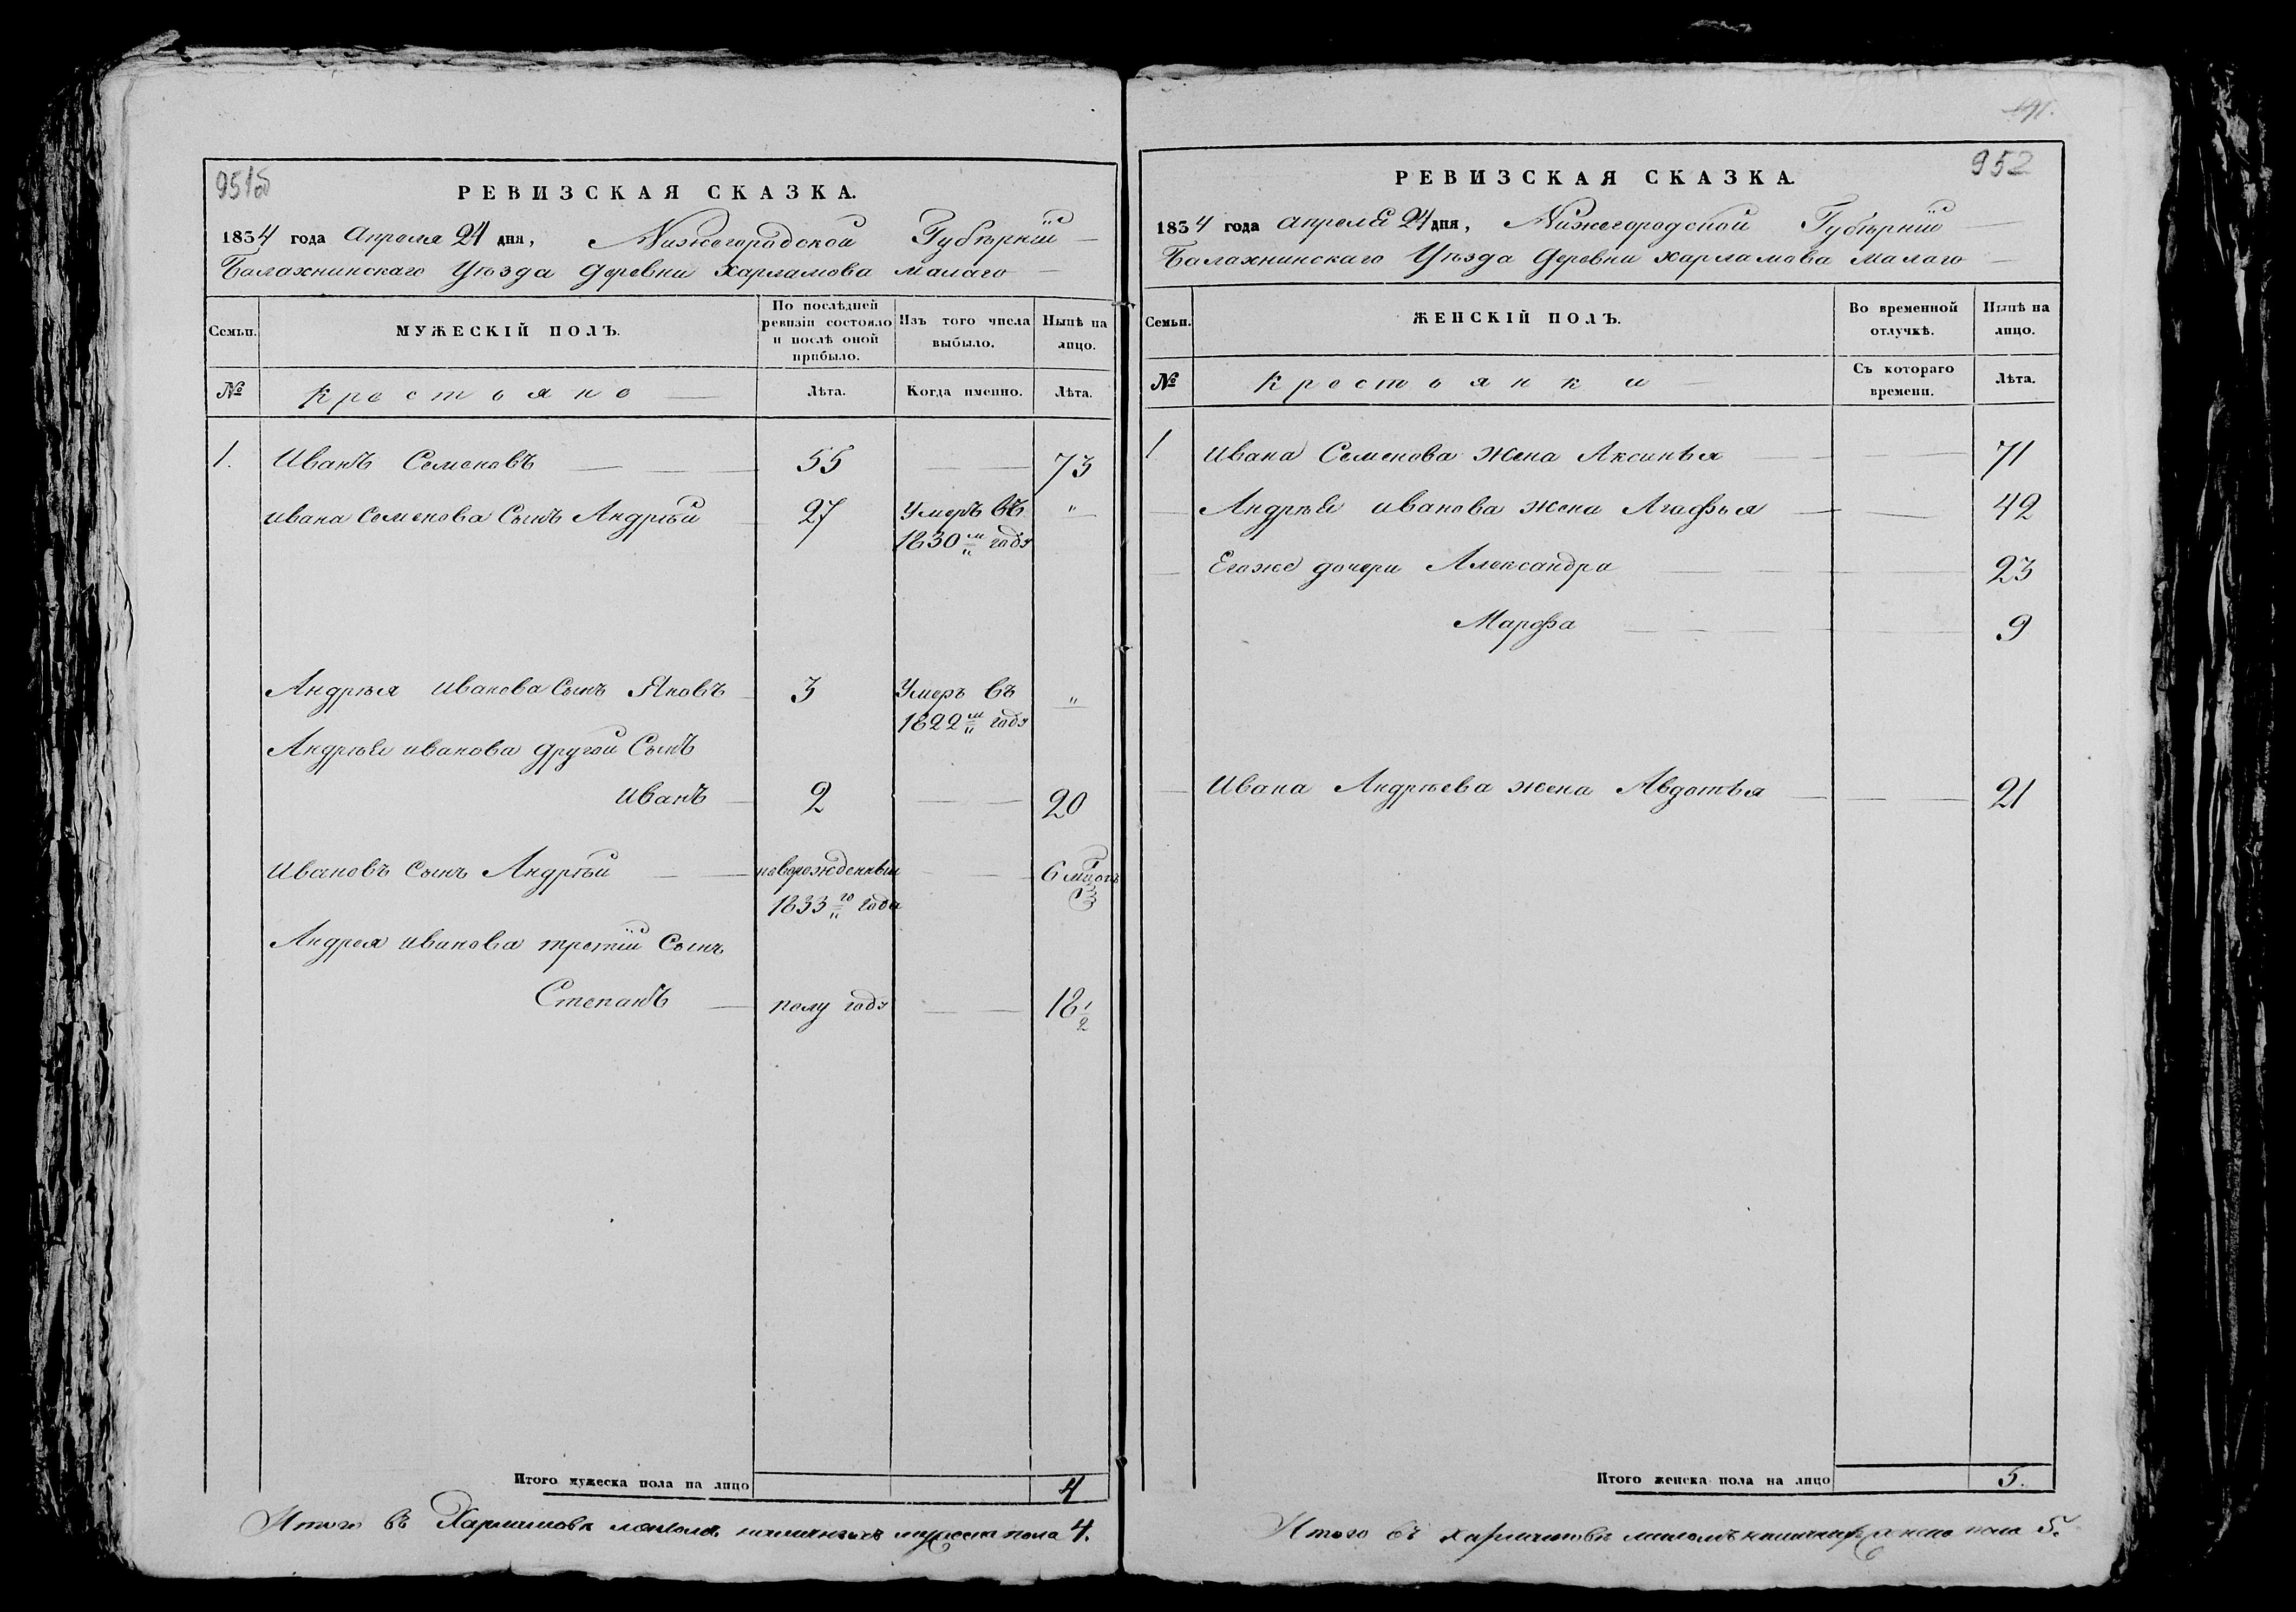 951об
РЕВИЗСКАЯ СКАЗКА.
1834 года Апреля 24 дня, Нижегородской Губѣрнiи
Балахнинскаго Уѣзда деревни Харламова малаго
Семьи. МУЖЕСКIЙ ПОЛЪ. По послѣдней ревизiи состояло и послѣ оной прибыло. Изъ того числа выбыло. Нынѣ на лицо.
№ Крестьяне Лѣта. Когда именно. Лѣта.
1. Иванъ Семеновъ 55 73
Ивана Семенова Сынъ Андрѣй 27 Умеръ въ "
1830м годѵ
Андрѣя Иванова Сынъ Яковъ 3 Умеръ въ "
1822м годѵ
Андрѣя Иванова другой Сынъ
Иванъ 2 20
Ивановъ Сынъ Андрѣй новорожденный 6 мцовъ
1833го года
Андрея Иванова третiй Сынъ
Степанъ полу годѵ 18 1/2
Итого мужеска пола на лицо 4
Итого въ Харламовѣ маломъ наличныхъ мужеска пола 4.
952
РЕВИЗСКАЯ СКАЗКА.
1834 года апреля 24 дня, Нижегородской Губѣрнiи
Балахнинскаго Уѣзда деревни Харламова малаго
Семьи. ЖЕНСКIЙ ПОЛЪ. Во временной отлучкѣ. Нынѣ на лицо.
№ Крестьянки Съ котораго времени. Лѣта.
1 Ивана Семенова Жена Аксинья 71
Андрѣя Иванова Жена Агафья 42
Егоже дочери Александра 23
Марфа 9
Ивана Андрѣева жена Авдотья 21
Итого женска пола на лицо 5.
Итого въ Харламовѣ маломъ пола 5.